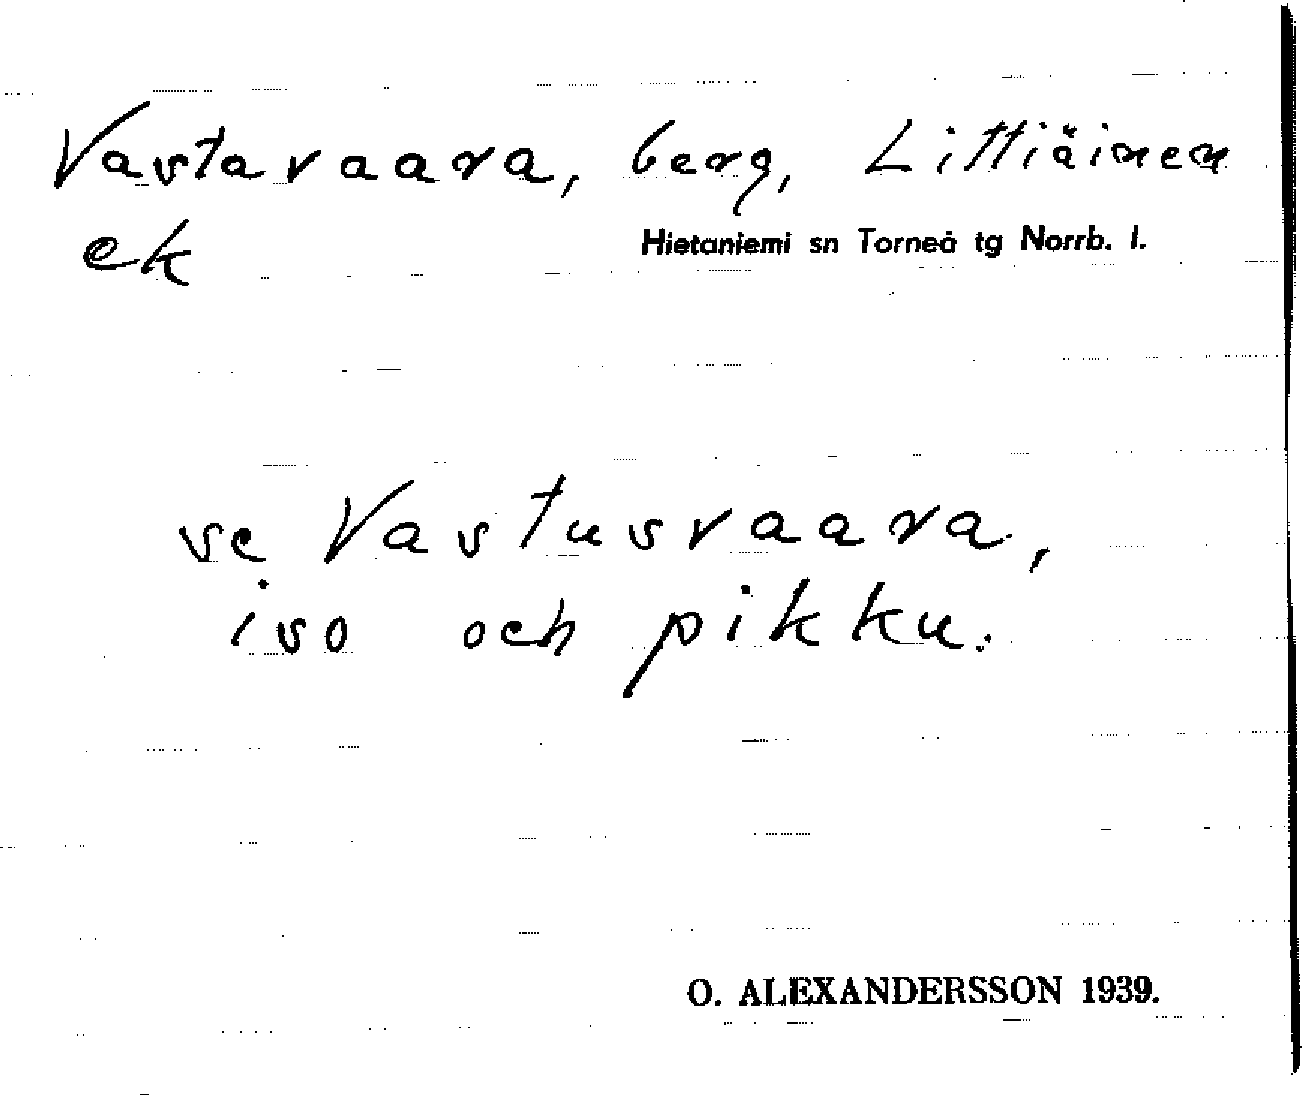 Vastavaara, berg, Littiäinen
ek
Hietaniemi sn Torneå tg Norrb. l.
se Vastusvaara,
iso och pikku.
O. ALEXANDERSSON 1939.